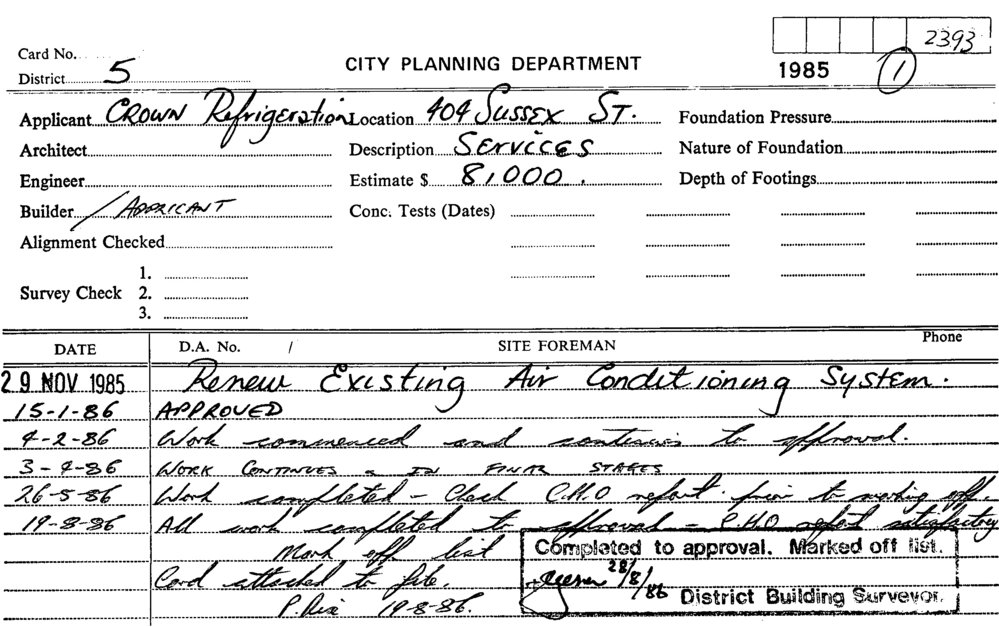 2393
Card No.
District 5
CITY PLANNING DEPARTMENT
1985 1
Applicant CROWN Refrigeration Location 404 SUSSEX ST. Foundation Pressure
Architect Description SERVICES Nature of Foundation
Engineer Estimate $ 81000. Depth of Footings
Builder / APPLICANT Conc. Tests (Dates)
Alignment Checked
1.
Survey Check 2.
3.
DATE D.A. No. / SITE FOREMAN Phone
29 NOV 1985 Renew Existing Air Conditioning System.
15-1-86 APPROVED
4-2-86 Work commenced and continues to approval.
3-4-86 WORK CONTINUES & IN FINAL STAGES
26-5-86 Work completed - Check C.H.O report prior to marking off.
19-8-86 All work completed to approval - C.H.O report satisfactory
Mark off list
Card attached to file.
P. 19-8-86.
Completed to approval. Marked off list.
28/8/86
District Building Surveyor.